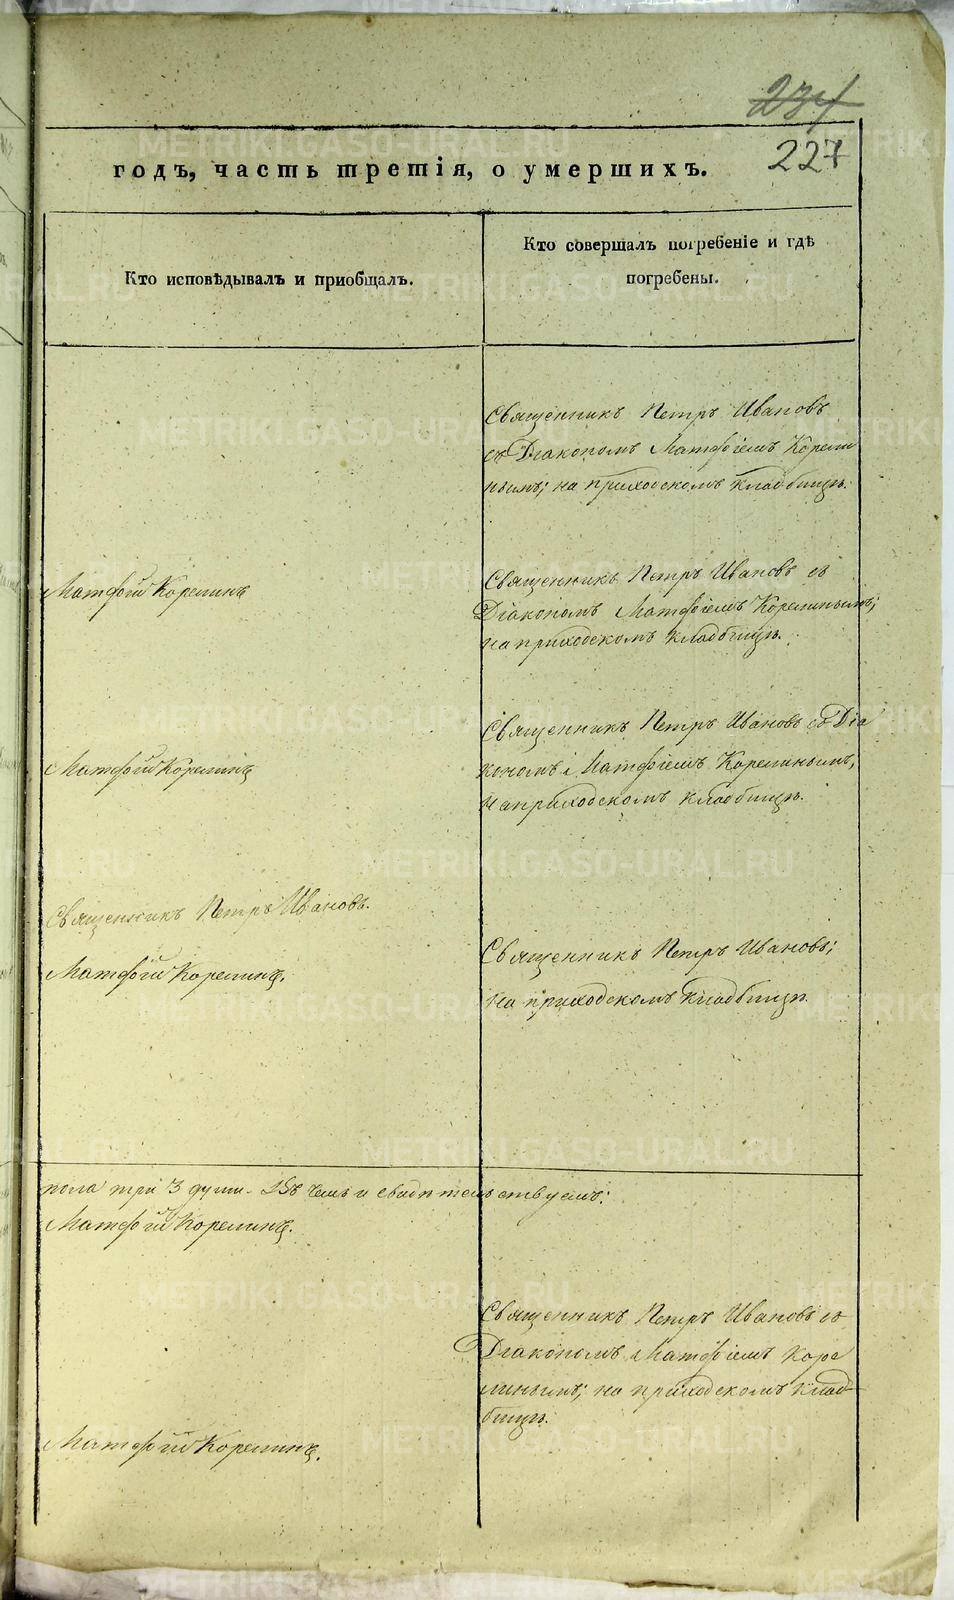 234
227
годъ, часть третія, о умершихъ.
Кто исповѣдывалъ и пріобщалъ.
Кто совершалъ погребеніе и гдѣ
погребены.
Священникъ Петръ Ивановъ
съ Діакономъ Матфіемъ Корели
нымъ; на приходскомъ кладбищѣ.
Матфій Корелинъ
Священникъ Петръ Ивановъ съ
Діакономъ Матфіемъ Корелинымъ;
на приходскомъ кладбищѣ.
Священникъ Петръ Ивановъ съ Діа
кономъ Матфіемъ Корелинымъ;
на приходскомъ кладбищѣ.
Матфій Корелинъ
Священникъ Петръ Ивановъ.
Матфій Корелинъ.
Священникъ Петръ Ивановъ;
на приходскомъ кладбищѣ.
пола три 3 души. Въ чемъ и свидѣтельствуемъ:
Матфій Корелинъ.
Священникъ Петръ Ивановъ съ
Діакономъ Матфіемъ Коре
линымъ; на приходскомъ клад
бищѣ.
Матфій Корелинъ.
METRIKI.GASO-URAL.RU